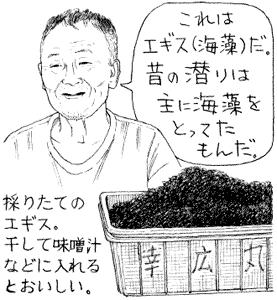 これは
エギス(海藻)だ。
昔の潜りは
主に海藻を
とってた
もんだ。
採りたての
エギス。
干して味噌汁
などに入れる
とおいしい。
幸広丸